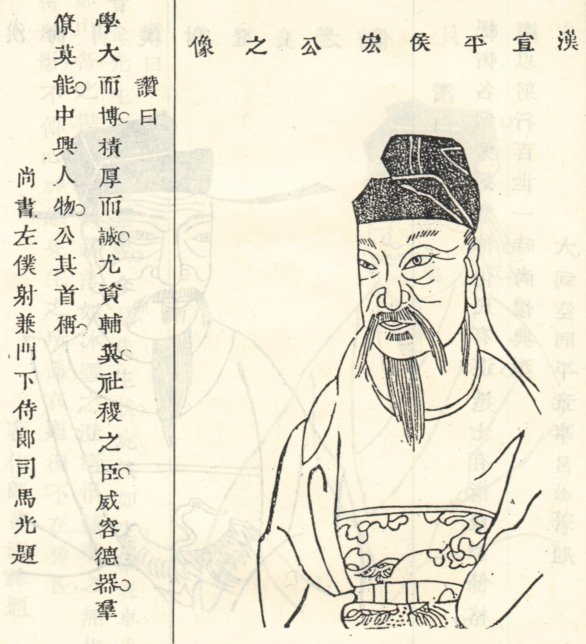 漢宣平侯宏公之像
讚曰
學大而博積厚而誠尤資輔與祉稷之臣威容德器羣
僚莫能中興人物公其首稱
尚書左僕射兼門下侍郎司馬光題